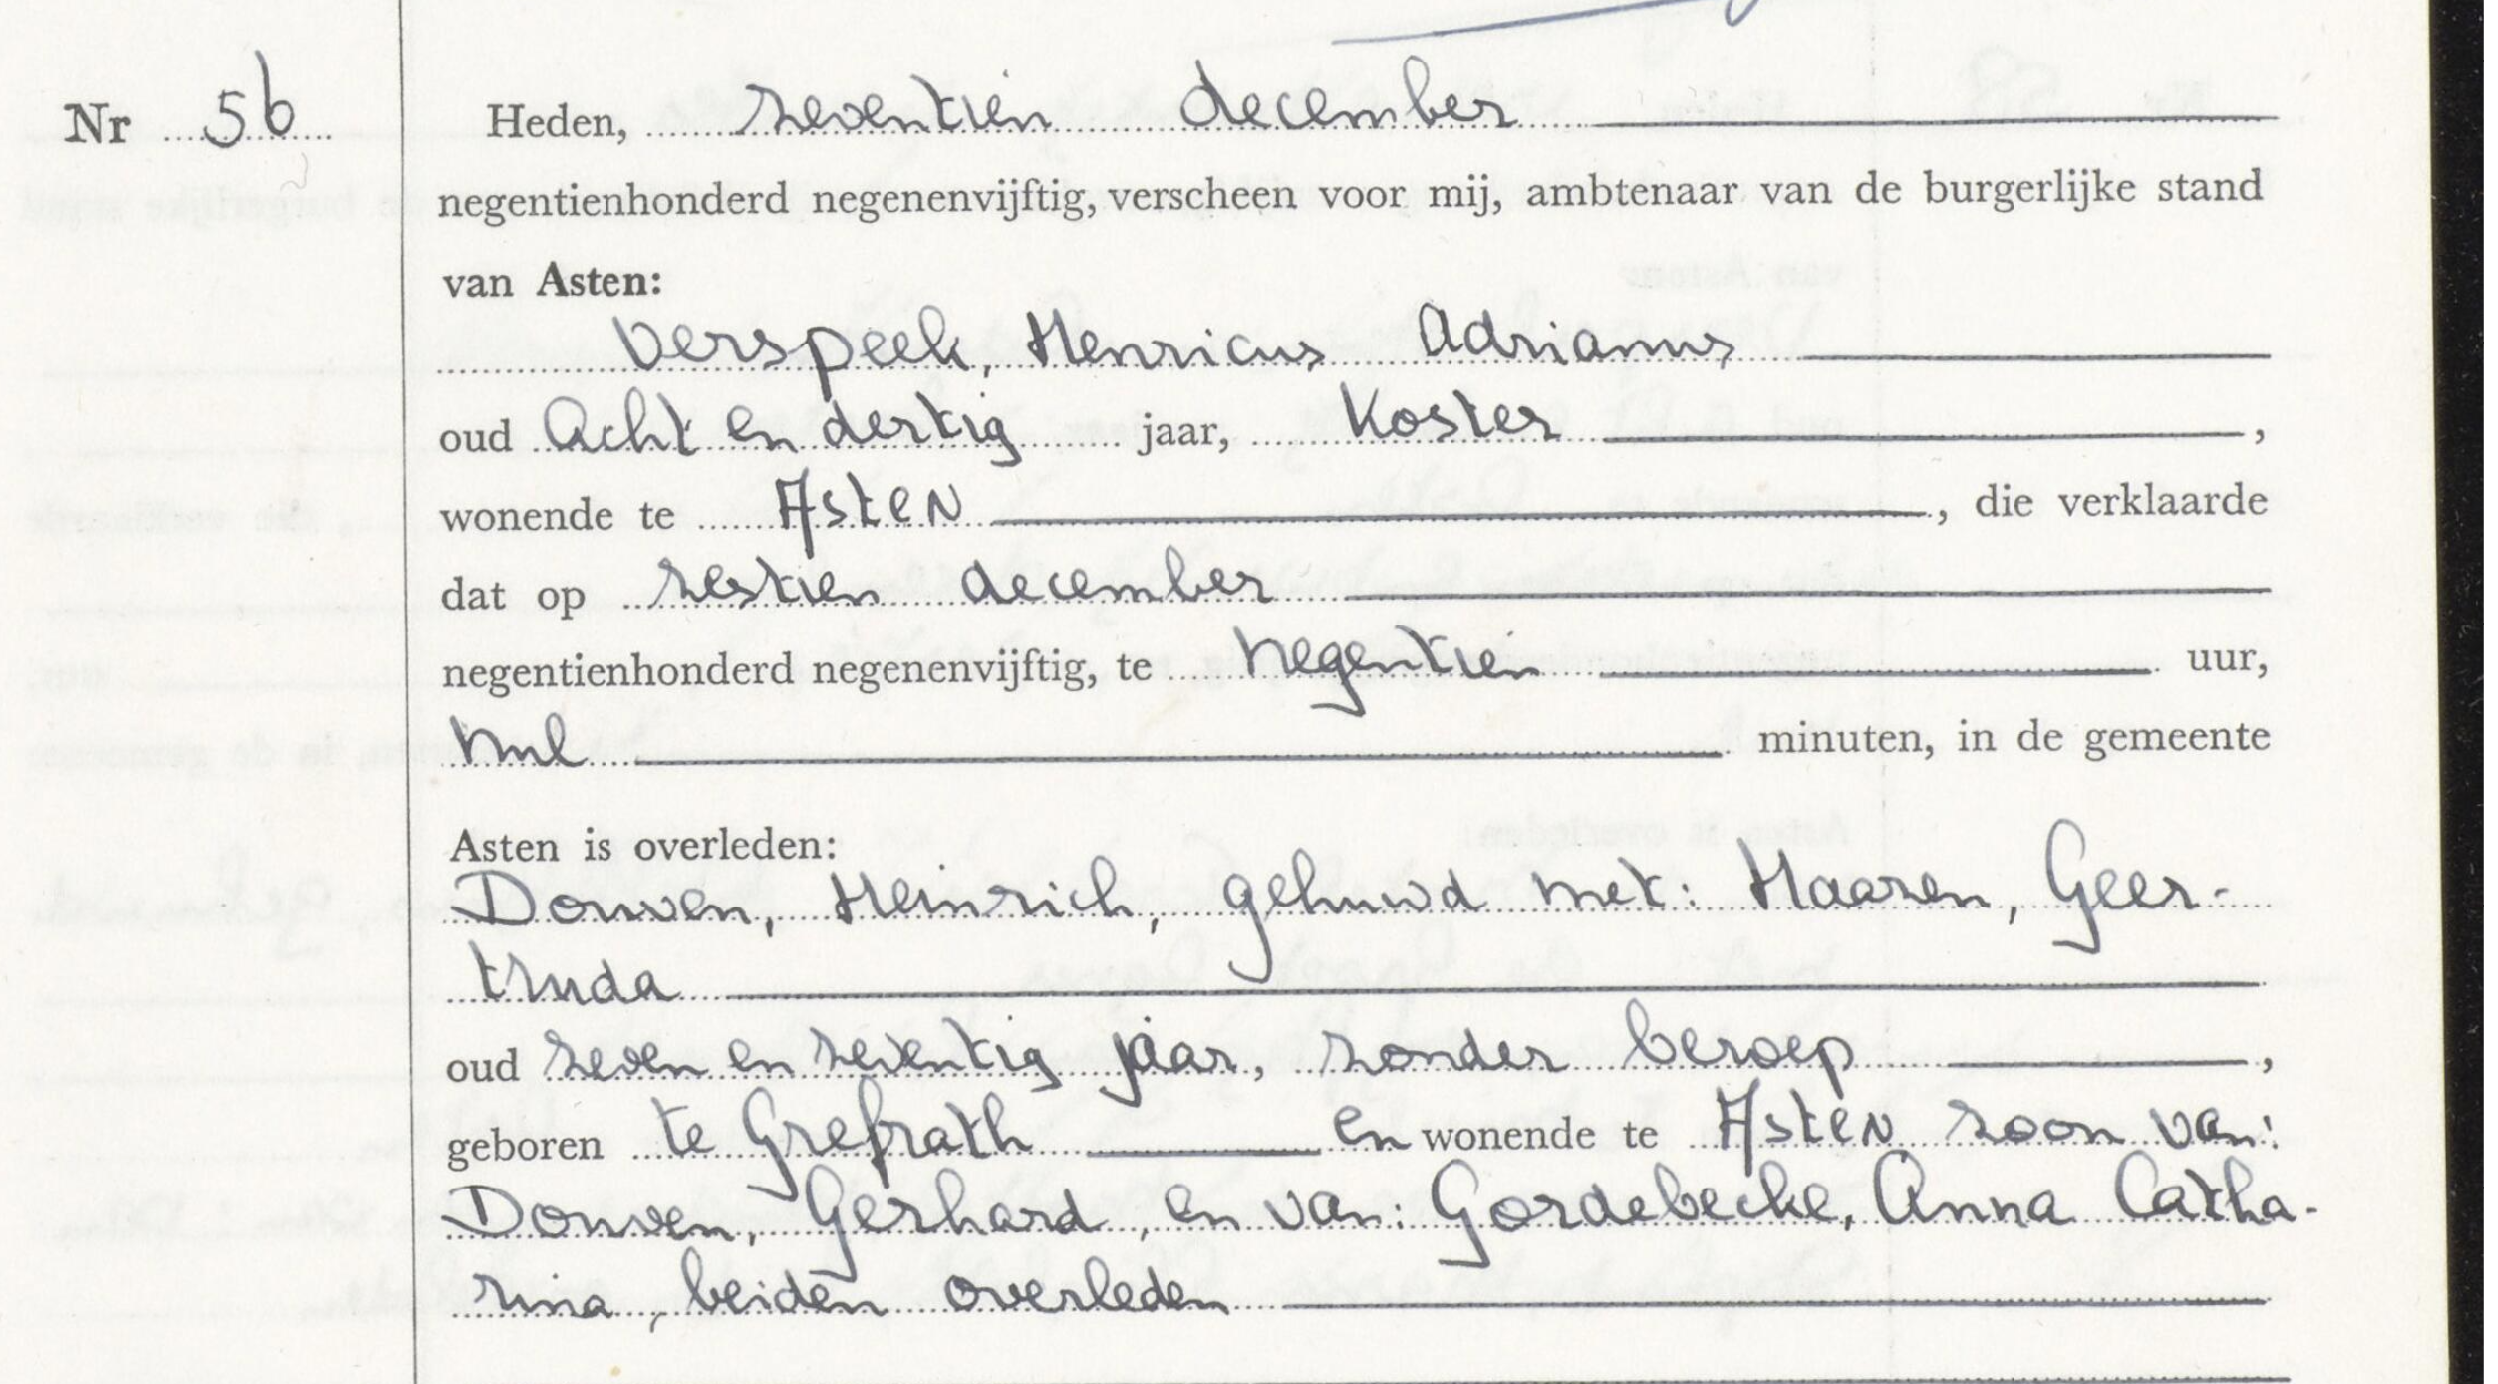 Nr 56
Heden, zeventien december
negentienhonderd negenenvijftig, verscheen voor mij, ambtenaar van de burgerlijke stand
van Asten:
Verspeek, Henricus Adrianus
oud Acht en dertig jaar, Koster ,
wonende te Asten , die verklaarde
dat op zestien december
negentienhonderd negenenvijftig, te negentien uur,
nul minuten, in de gemeente
Asten is overleden:
Douven, Heinrich, gehuwd met: Haaren, Geer-
truda
oud zeven en zeventig jaar, zonder beroep ,
geboren te Grefrath en wonende te Asten zoon van:
Douven, Gerhard, en van: Gordebecke, Anna Catha-
rina, beiden overleden